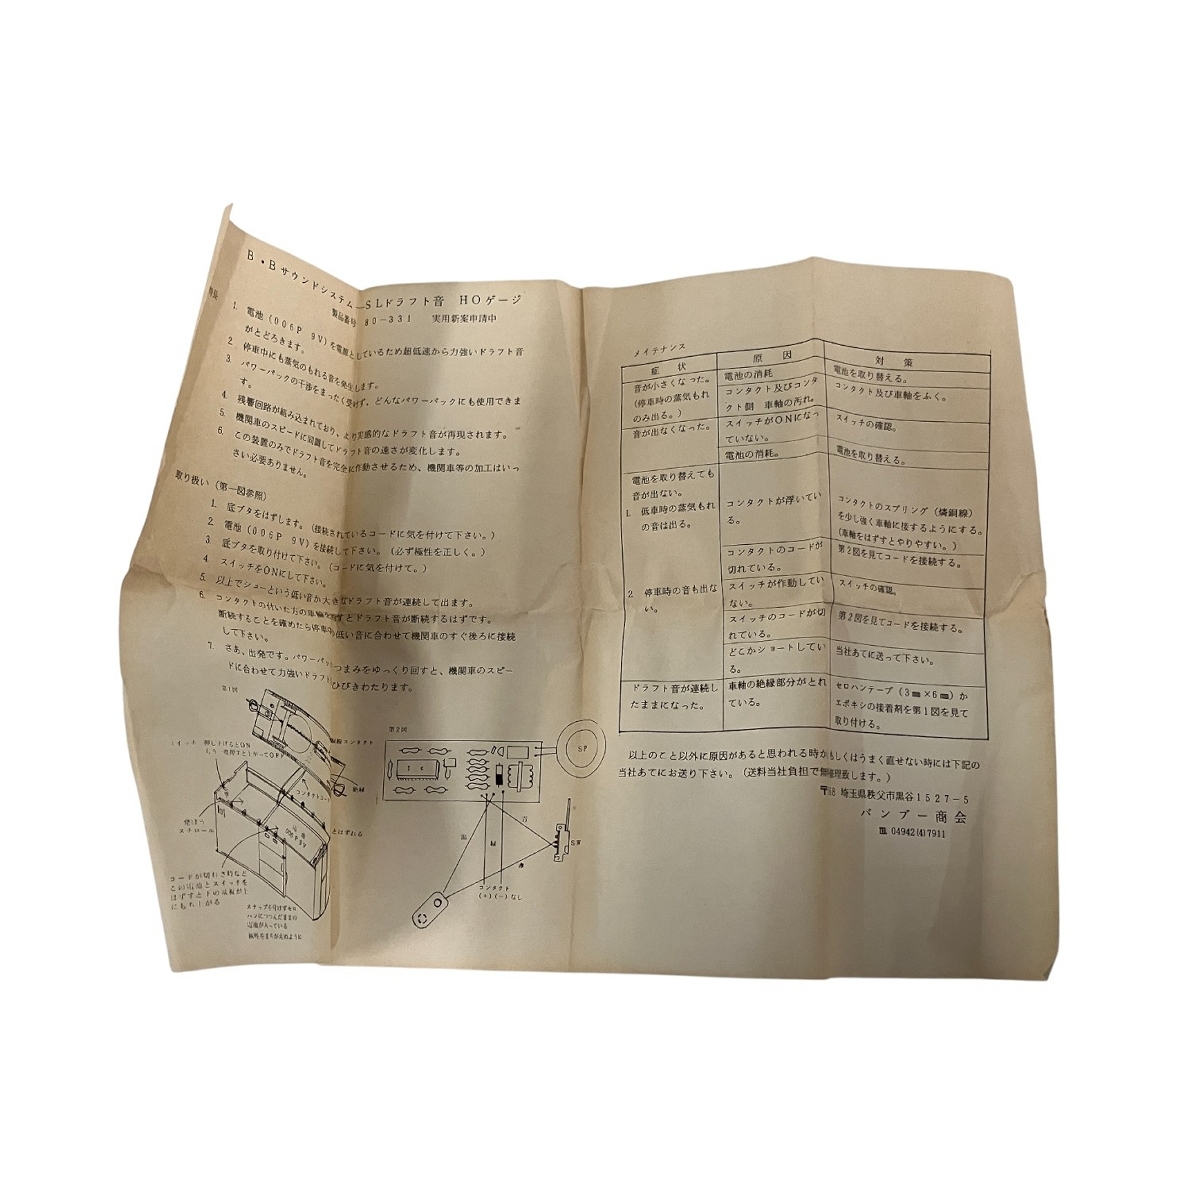 B・Bサウンドシステム SLドラフト音 HOゲージ
製品番号 80-331 実用新案申請中
特長
1. 電池(006P 9V)を電源としているため超低速から力強いドラフト音
がとどろきます。
2. 停車中にも蒸気のもれる音を発生します。
3. パワーパックの干渉をまったく受けず、どんなパワーパックにも使用できま
す。
4. 残響回路が組み込まれており、より実感的なドラフト音が再現されます。
5. 機関車のスピードに同調してドラフト音の速さが変化します。
6. この装置のみでドラフト音を完全に作動させるため、機関車等の加工はいっ
さい必要ありません。
取り扱い(第一図参照)
1. 底ブタをはずします。(接続されているコードに気を付けて下さい。)
2. 電池(006P 9V)を接続して下さい。(必ず極性を正しく。)
3. 底ブタを取り付けて下さい。(コードに気を付けて。)
4. スイッチをONにして下さい。
5. 以上でシューという低い音か大きなドラフト音が連続して出ます。
6. コンタクトの付いた方の車輪を回すとドラフト音が断続するはずです。
断続することを確めたら停車中の低い音に合わせて機関車のすぐ後ろに接続
して下さい。
7. さあ、出発です。パワーパックつまみをゆっくり回すと、機関車のスピー
ドに合わせて力強いドラフト ひびきわたります。
第1図
スイッチ 押し下げるとON
もう一度押すと上がってOFF
コンタクト
絶縁
コンタクトコード
スチロール
電池
006P9V
とはずれる
コードが切れた時など
この電池とスイッチを
はずすと下の基板が上
にもれ上がる
スナップを付けずセロ
ハンにつつんだままの
電池が入っている
極性をまちがえぬように
第2図
I C
SP
黒
緑
白
赤
SW
コンタクト
(+)(-)なし
メイテナンス
症 状 原 因 対 策
音が小さくなった。 電池の消耗 電池を取り替える。
(停車時の蒸気もれ コンタクト及びコンタ コンタクト及び車軸をふく。
のみ出る。) クト側 車軸の汚れ。
音が出なくなった。 スイッチがONになっ スイッチの確認。
ていない。
電池の消耗。 電池を取り替える。
電池を取り替えても
音が出ない。
1. 低車時の蒸気もれ コンタクトが浮いてい コンタクトのスプリング(燐銅線)
の音は出る。 る。 を少し強く車軸に接するようにする。
(車軸をはずすとやりやすい。)
コンタクトのコードが 第2図を見てコードを接続する。
切れている。
2. 停車時の音も出な スイッチが作動してい スイッチの確認。
い。 ない。
スイッチのコードが切 第2図を見てコードを接続する。
れている。
どこかショートしてい 当社あてに送って下さい。
る。
ドラフト音が連続し 車軸の絶縁部分がとれ セロハンテープ(3㎜×6㎜)か
たままになった。 ている。 エポキシの接着剤を第1図を見て
取り付ける。
以上のこと以外に原因があると思われる時かもしくはうまく直せない時には下記の
当社あてにお送り下さい。(送料当社負担で無修理致します。)
〒368 埼玉県秩父市黒谷1527-5
バンブー商会
℡ 04942(4)7911